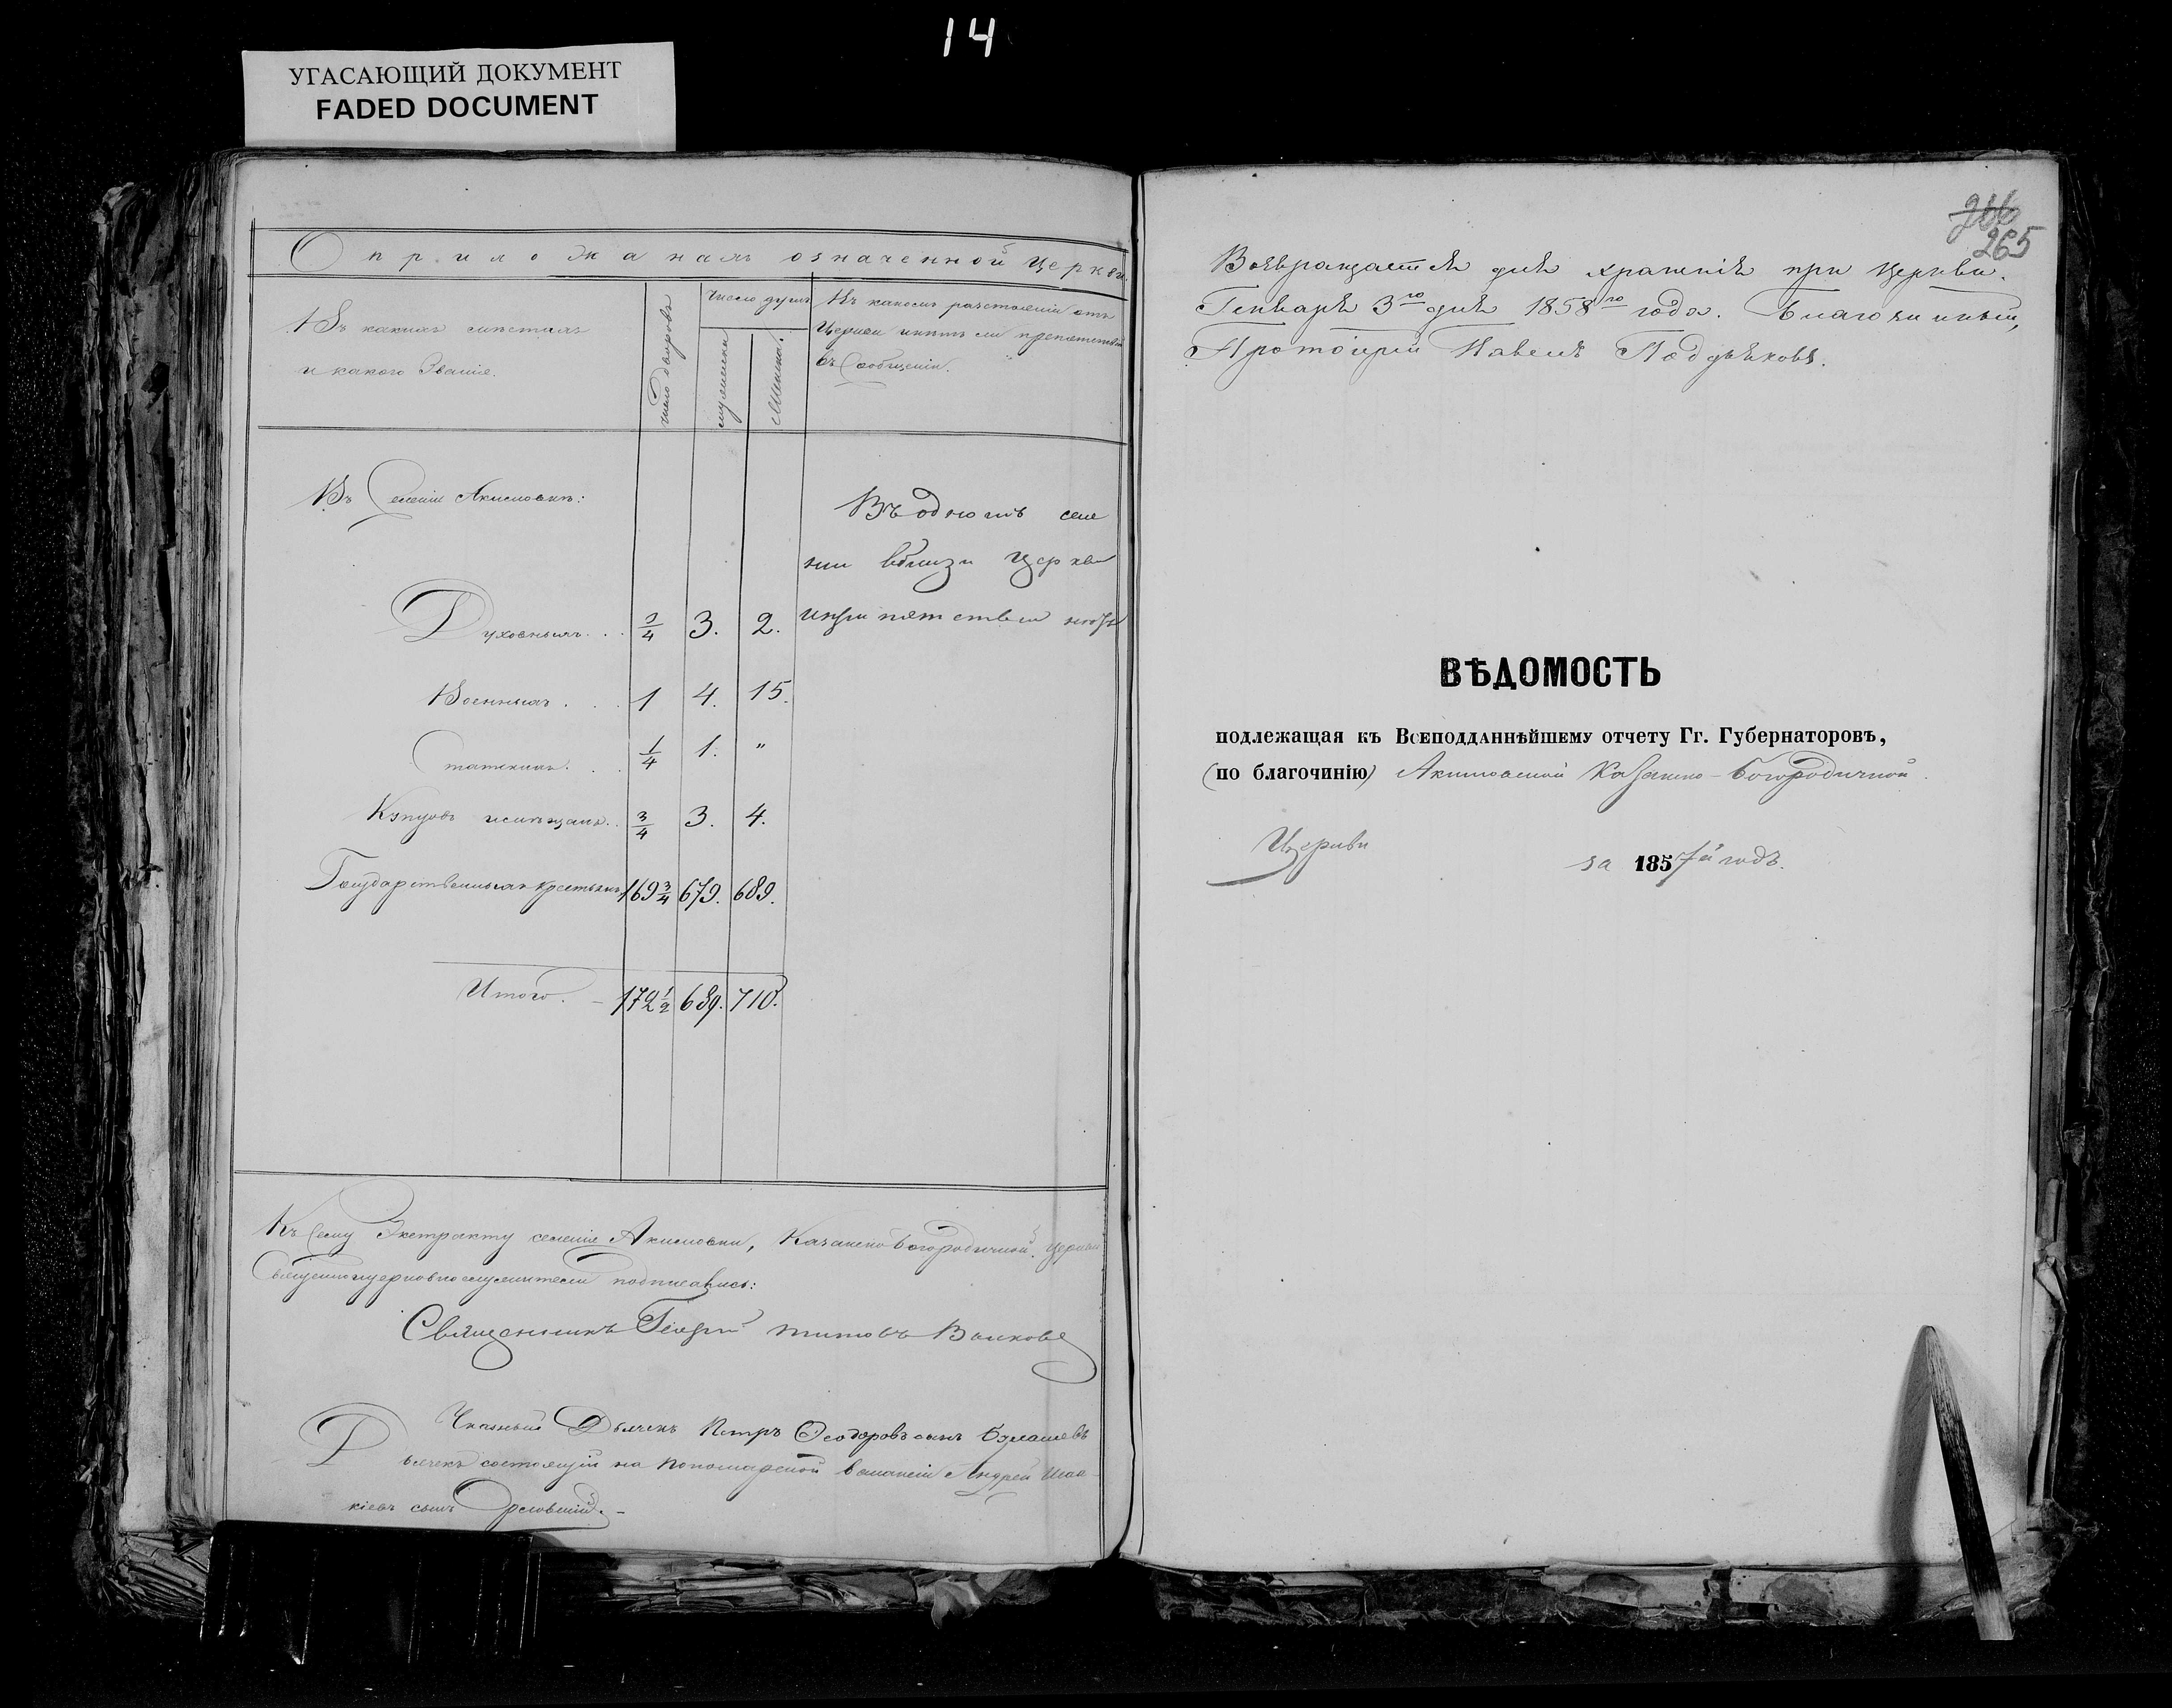 14
УГАСАЮЩИЙ ДОКУМЕНТ
FADED DOCUMENT
О прихожанахъ означенной церкви.
Въ какихъ мѣстахъ
и какого званія.
число дворовъ
число душъ
мужеска
женска.
Въ какомъ разстояніи отъ
Церкви и нѣтъ ли препятствій
въ сообщеніи.
Въ Селеніи Акимовкѣ:
Въ одномъ селе
ніи вблизи Церкви
и препятствія нетъ
Духовныхъ. . . 3/4 3. 2.
Военныхъ . . . 1 4. 15.
Статскихъ. . . 1/4 1. "
Купцовъ и мѣщанъ. . 3/4 3. 4.
Государственныхъ крестьянъ 169 3/4 679. 689.
Итого. – 172 1/2 689. 710.
Къ Сему Экстракту селенія Акимовки, Казанско-Богородичной церкви
Священноцерковнослужители подписались:
Священникъ Георгій Титовъ Волковъ
Дьячекъ Петръ Ѳеодоровъ сынъ
Дьячекъ состоящій на пономарской вакансіи Андрей Исаа-
кіевъ сынъ Орловскій. –
266
265
Возвращается для храненія при Церкви.
Генваря 3го дня 1858го года. Благочинный,
Протоіерей Павелъ Поддьяковъ.
ВѢДОМОСТЬ
подлежащая къ Всеподданнѣйшему отчету Гг. Губернаторовъ,
(по благочинію) Акимовской Казанско-Богородичной
Церкви
за 1857й годъ.